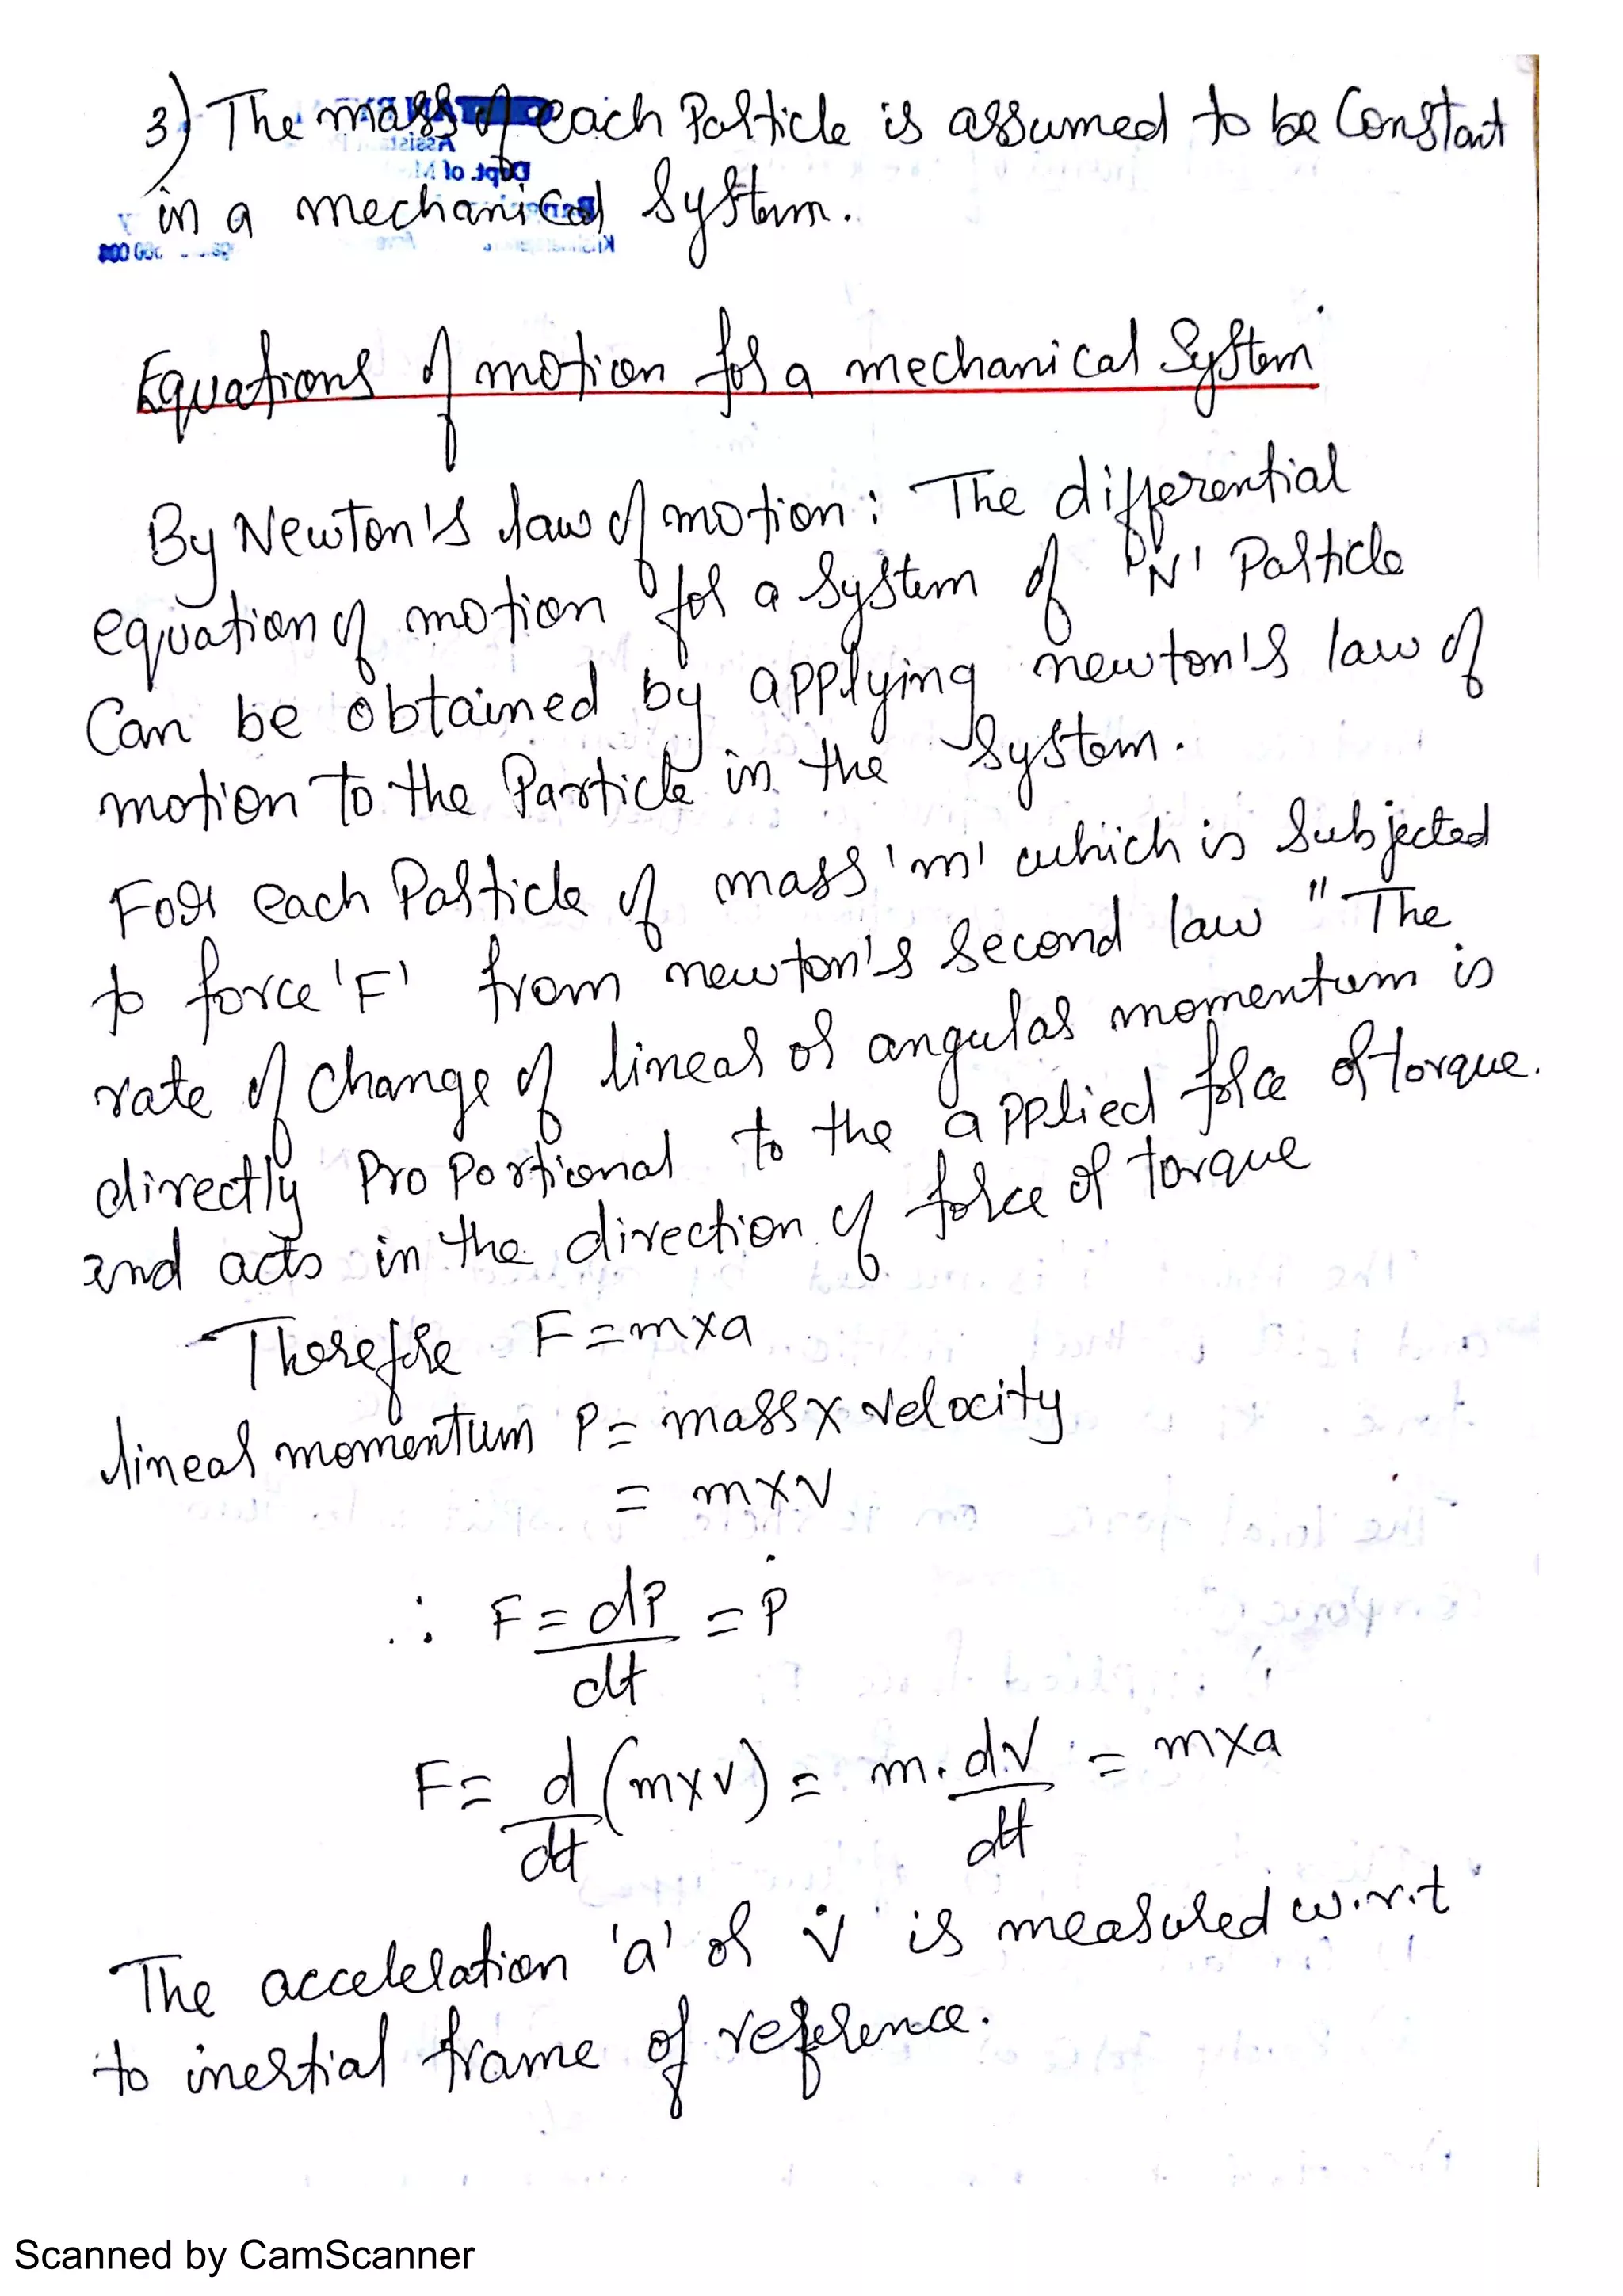 3) The mass of each Particle is assumed to be Constant
in a mechanical System.
Equations of motion for a mechanical System
By Newton's law of motion: The differential
equation of motion for a system of 'N' Particle
Can be obtained by applying newton's law of
motion to the Particle in the System.
For each Particle of mass 'm' which is Subjected
to force 'F' from newton's Second law "The
rate of change of linear or angular momentum is
directly Proportional to the applied force or torque.
and acts in the direction of force or torque
Therefore F=m×a
linear momentum P= mass×velocity
= m×v
∴ F=dP/dt =Ṗ
F= d/dt (m×v) = m. dv/dt = m×a
The acceleration 'a' or v̇ is measured w.r.t
to inertial frame of reference.
Scanned by CamScanner